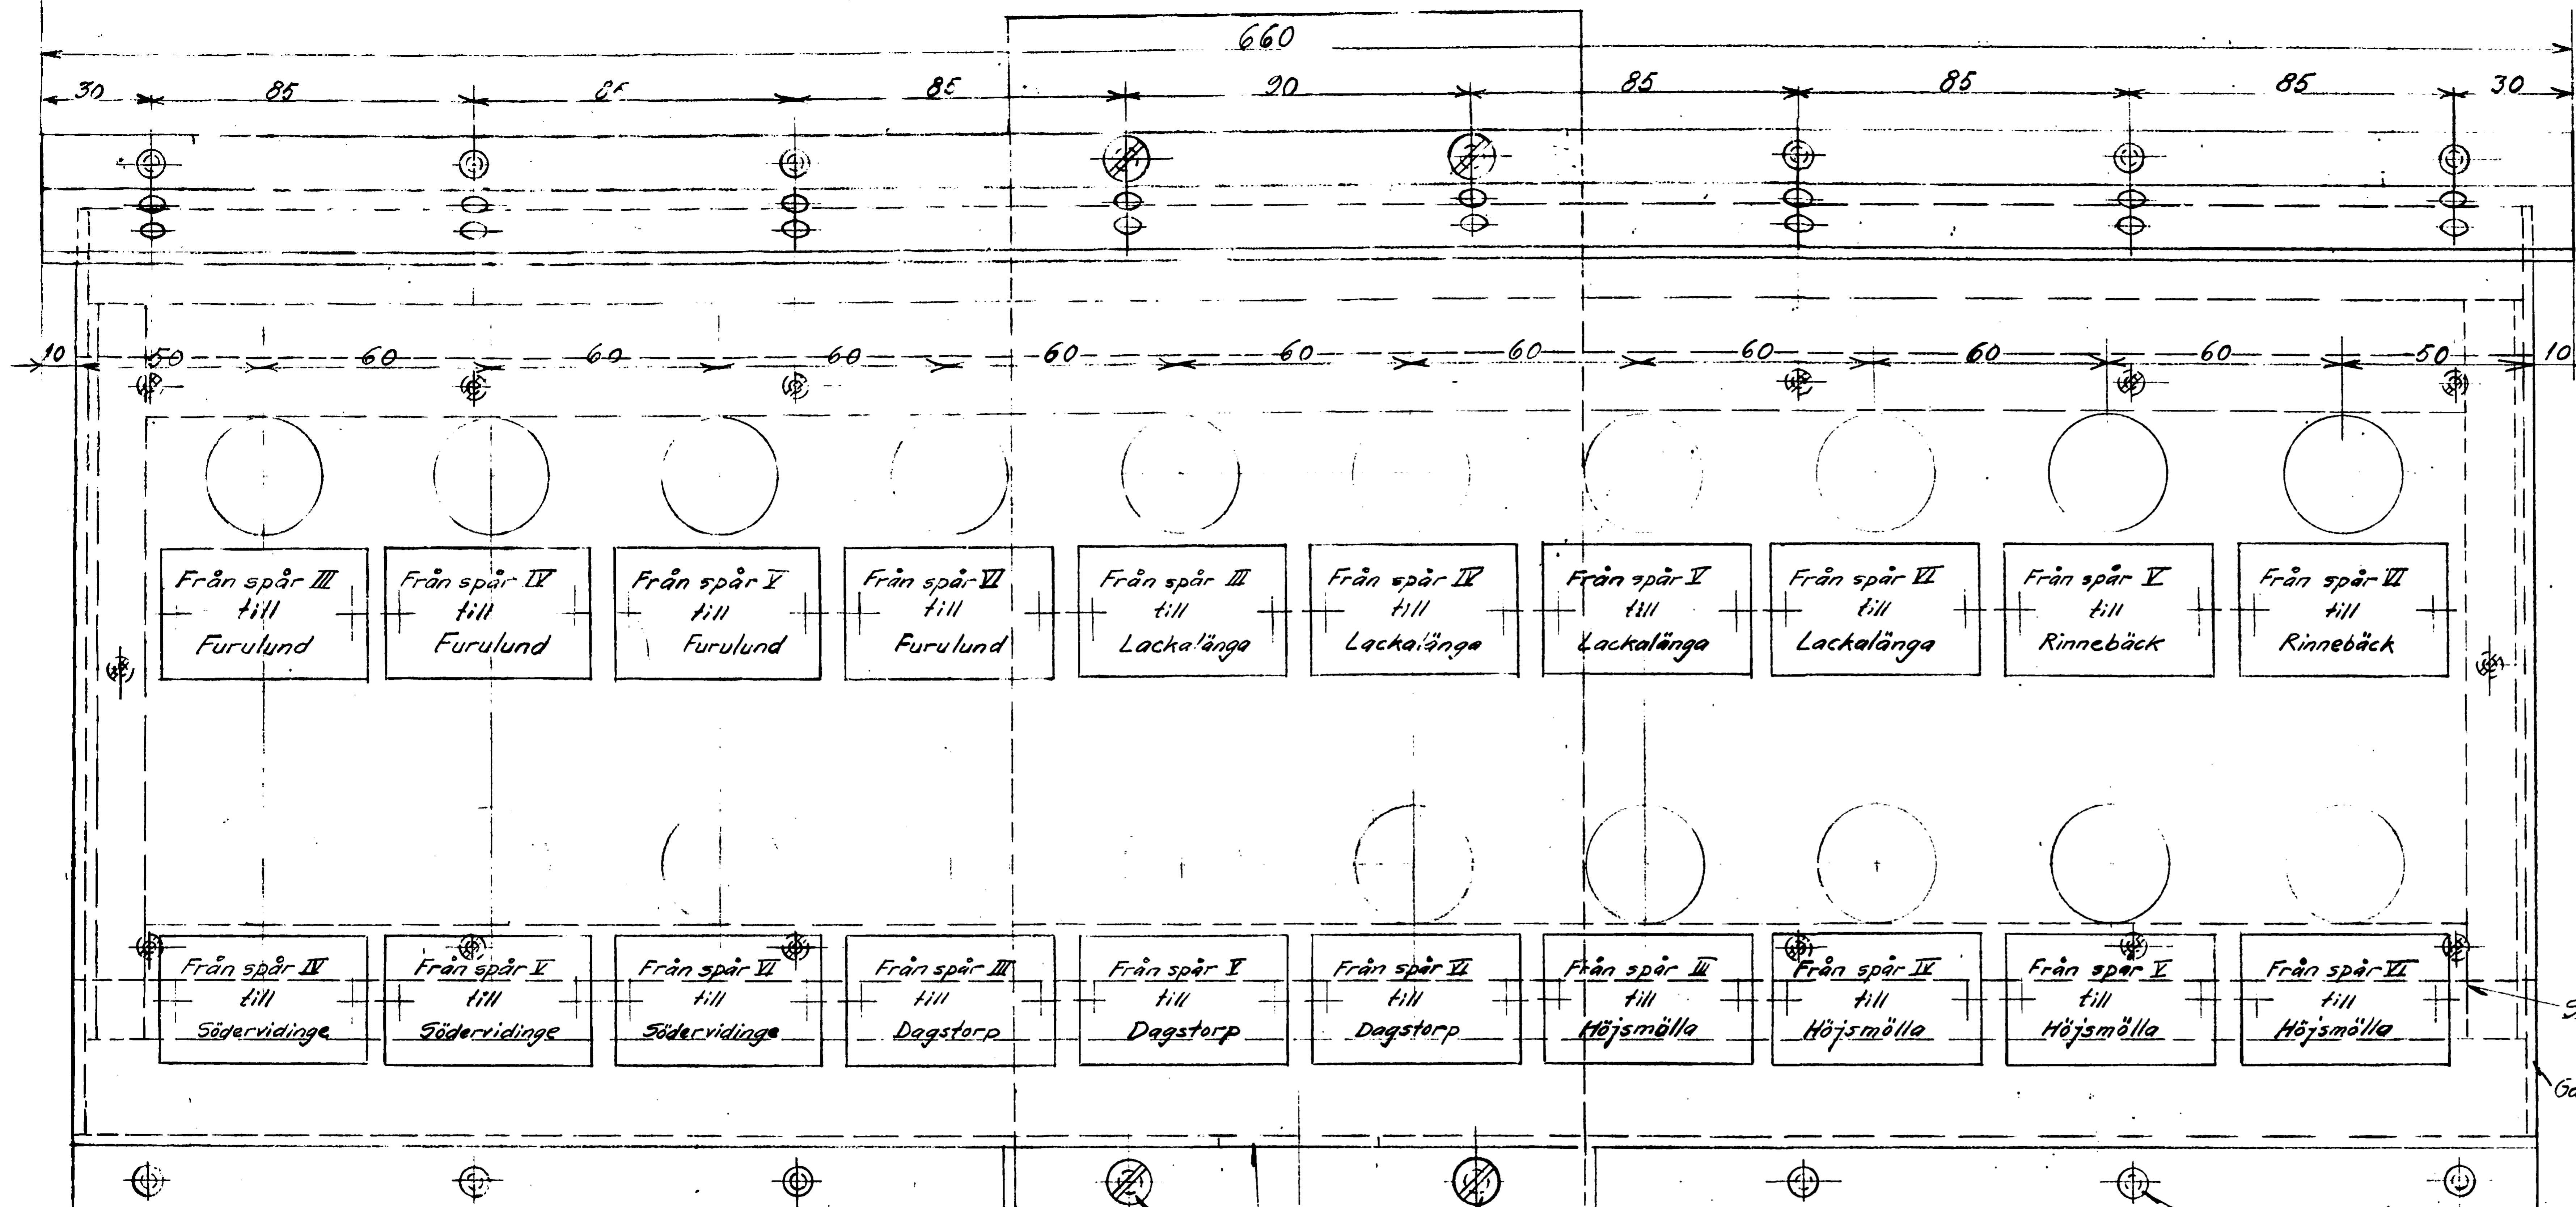 660
30 85 85 85 90 85 85 85 30
10 50 60 60 60 60 60 60 60 60 60 50 10
Från spår III
till
Furulund
Från spår IV
till
Furulund
Från spår V
till
Furulund
Från spår VI
till
Furulund
Från spår III
till
Lackalänga
Från spår IV
till
Lackalänga
Från spår V
till
Lackalänga
Från spår VI
till
Lackalänga
Från spår V
till
Rinnebäck
Från spår VI
till
Rinnebäck
Från spår IV
till
Södervidinge
Från spår V
till
Södervidinge
Från spår VI
till
Södervidinge
Från spår III
till
Dagstorp
Från spår V
till
Dagstorp
Från spår VI
till
Dagstorp
Från spår III
till
Höjsmölla
Från spår IV
till
Höjsmölla
Från spår V
till
Höjsmölla
Från spår VI
till
Höjsmölla